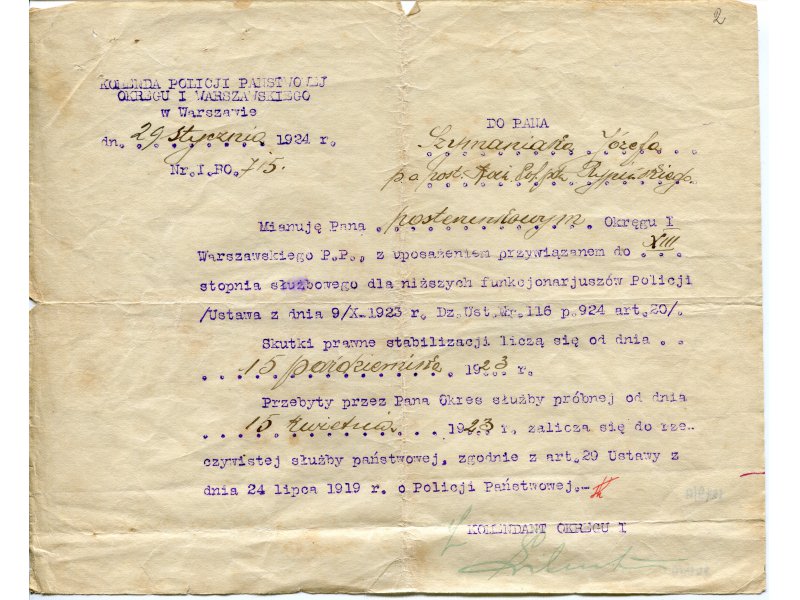 2
KOMENDA POLICJI PAŃSTWOWEJ
OKRĘGU I WARSZAWSKIEGO
w Warszawie
dn. 29 stycznia 1924 r.
Nr. I.BO. 715.
DO PANA
Szymaniaka Józefa
p.o. post. Pol. Rypińskiego
Mianuję Pana posterunkowym Okręgu I
Warszawskiego P.P., z uposażeniem przywiązanem do XIII
stopnia służbowego dla niższych funkcjonarjuszów Policji
/Ustawa z dnia 9/X.1923 r. Dz.Ust.Nr.116 p.924 art.20/.
Skutki prawne stabilizacji liczą się od dnia . .
15 października 1923 r.
Przebyty przez Pana Okres służby próbnej od dnia
15 kwietnia 1923 r, zalicza się do rze-
czywistej służby państwowej, zgodnie z art.29 Ustawy z
dnia 24 lipca 1919 r. o Policji Państwowej.-
KOMENDANT OKRĘGU I